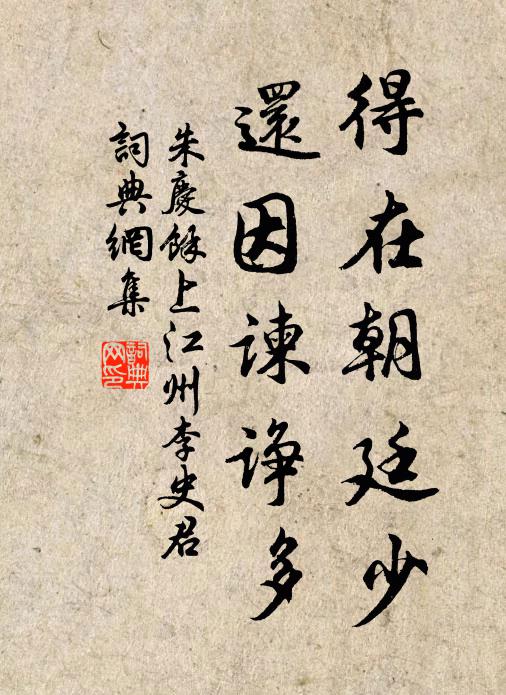 得在朝廷少
還因諫諍多
朱慶餘上江州李史君
詞典網集
詞典網印